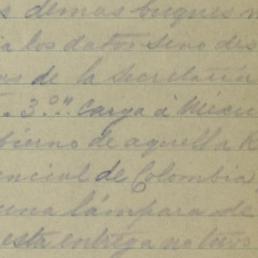 s demas buques
a los datos sino des
os de la secretaria
3.º" carga á Mexic
bierno de aquella R
encial de Colombia
una lámpara de
esta entrega no tuvo